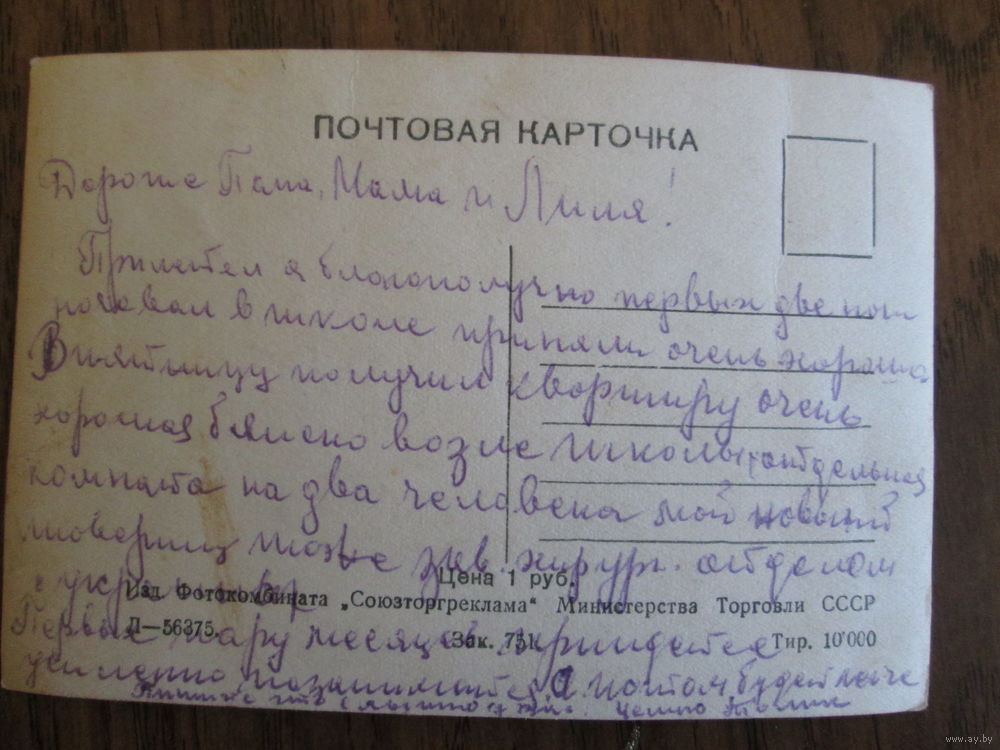 ПОЧТОВАЯ КАРТОЧКА
Дорогие Папа, Мама и Лиля!
Прилетел я благополучно первых две ночи
ночевал в школе приняли очень хорошо
В пятницу получил квартиру очень
хорошая близко возле школы, отдельная
комната на два человека мой новый
товарищ тоже зав. хирург. отделом
с
Цена 1 руб.
Изд. Фотокомбината „Союзторгреклама“ Министерства Торговли СССР
Л—56375. Зак. 751. Тир. 10 000
Первые пару месяцев придется
усиленно позаниматься а потом будет легче
Пишите что слышно у Вас. Целую
www.ay.by